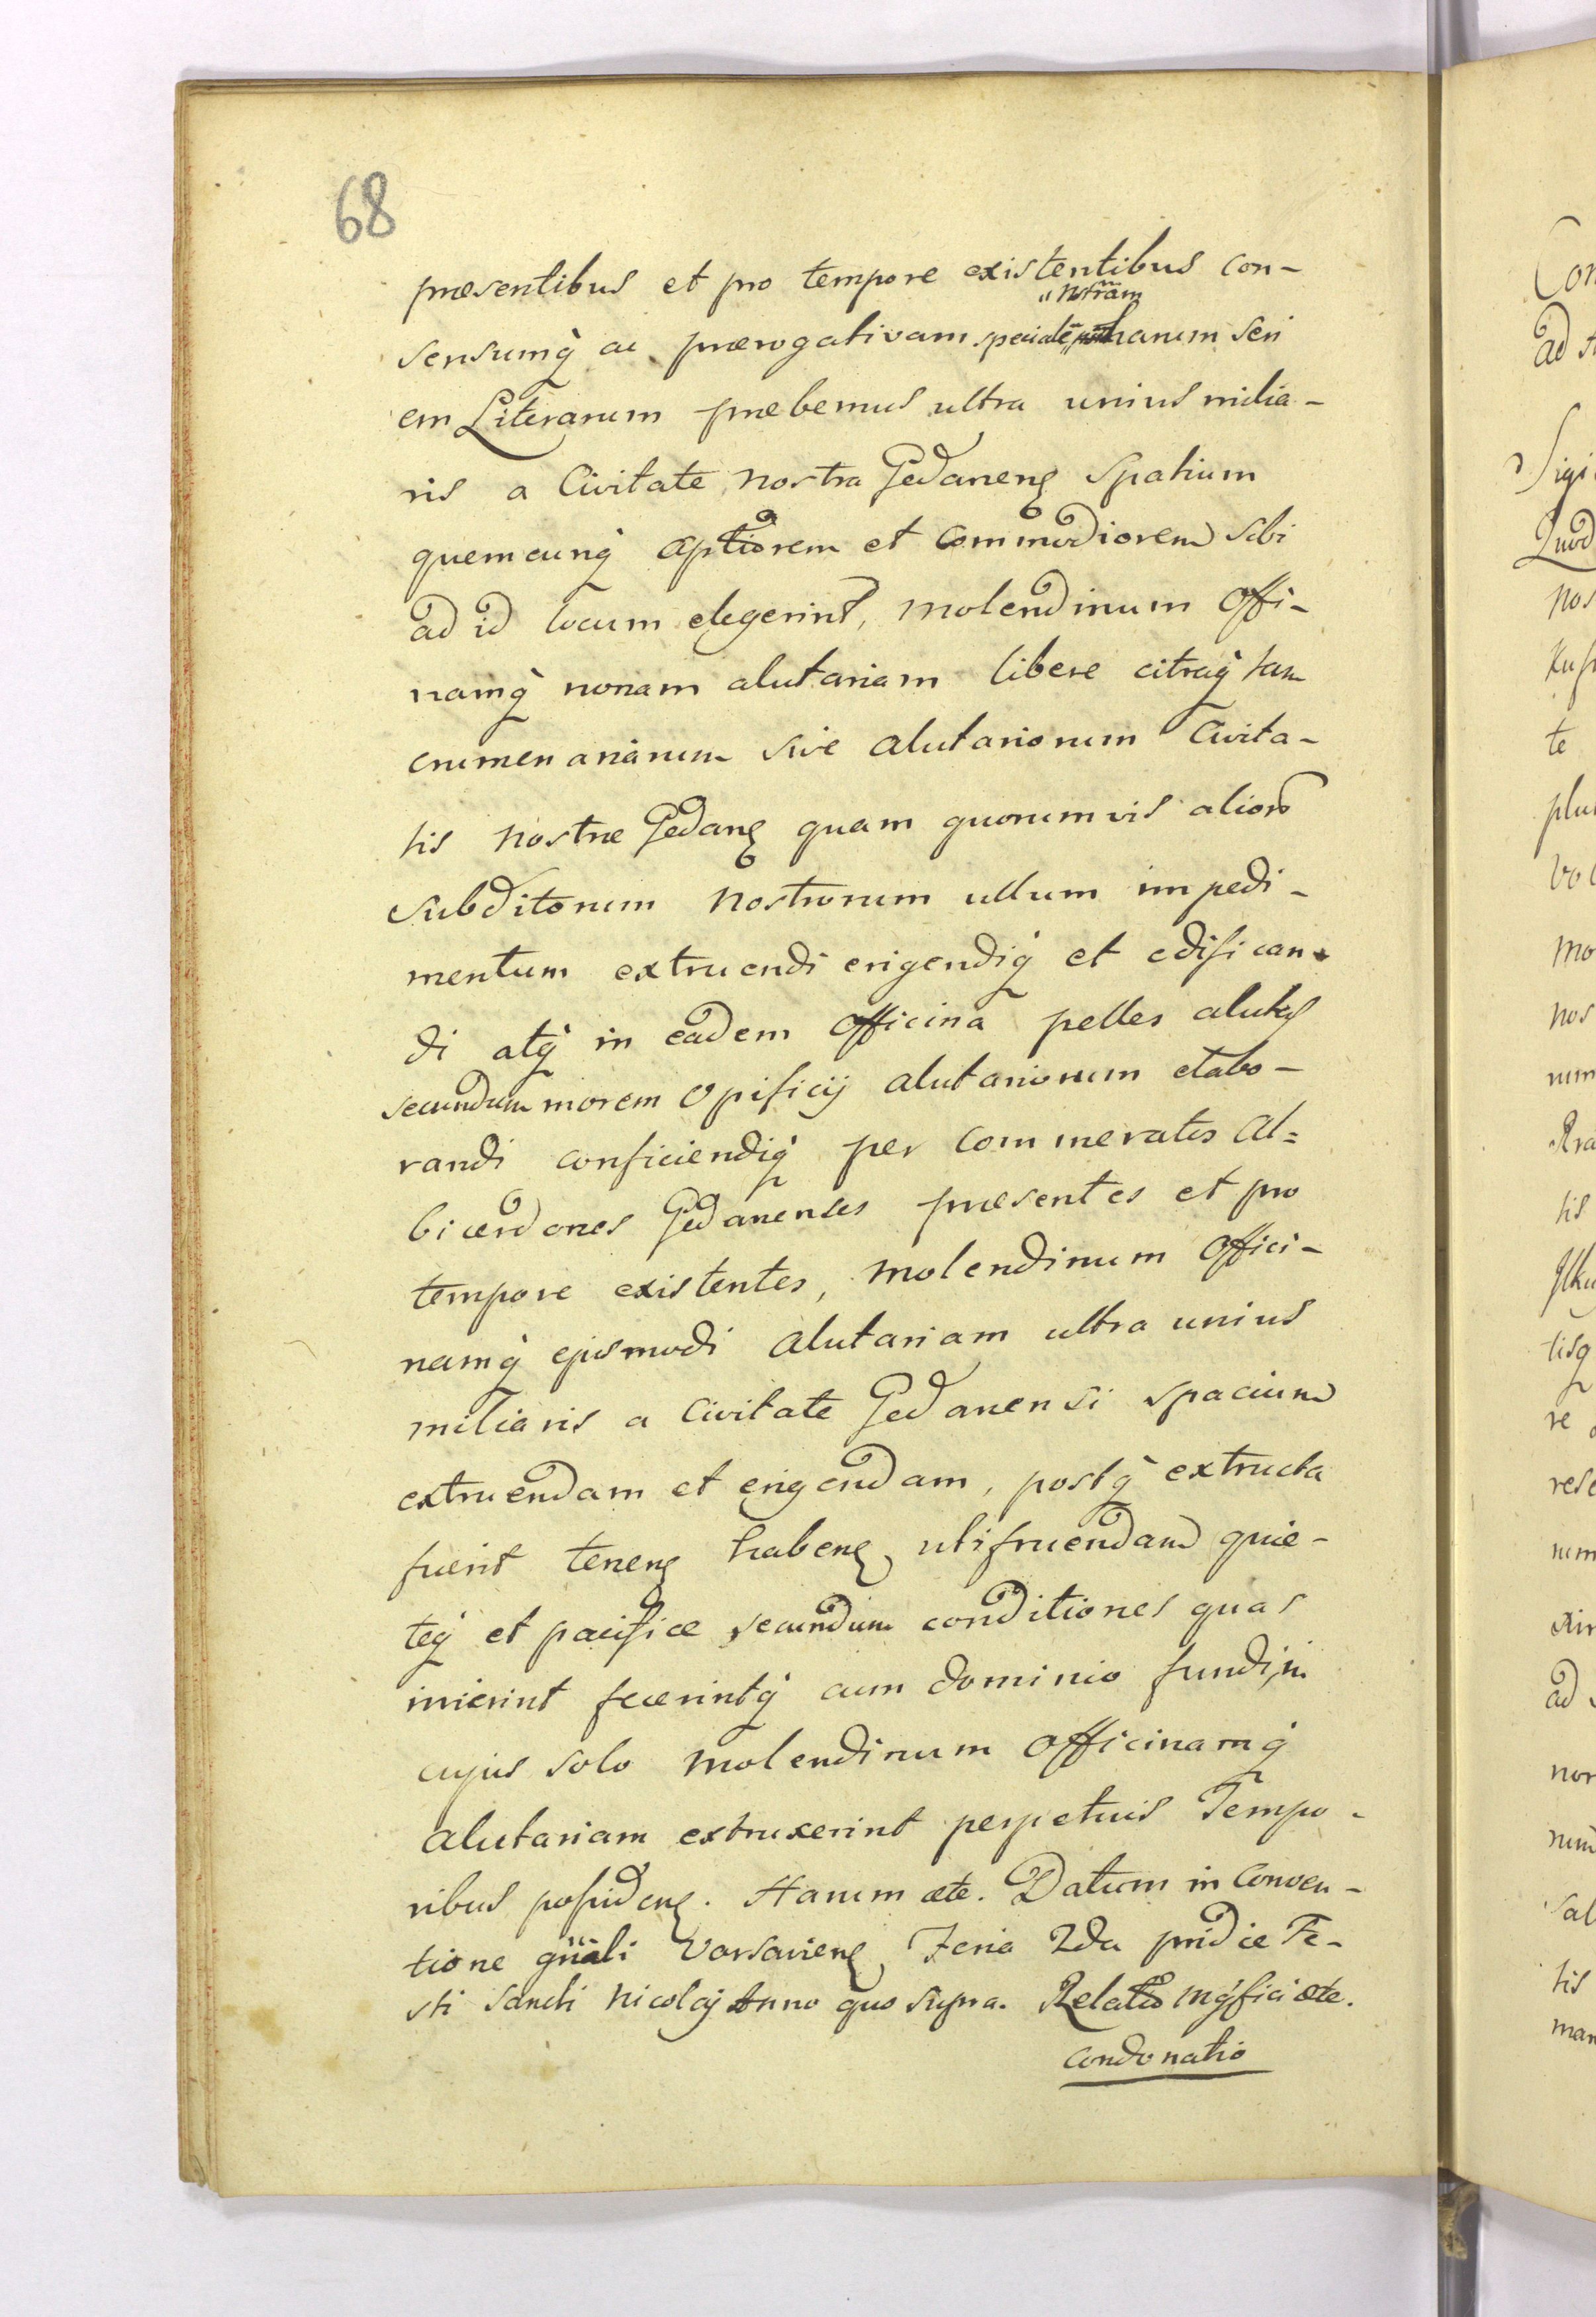 68
præsentibus et pro tempore existentibus con-
„nstram
sensumq̀ ac prærogativam specialē „harum seri
em Literarum præbemus ultra unius milia-
ris a Civitate nostra Gedanenȩ Spatium
quemcunq̀ aptiorem et commodiorem sibi
ad id locum elegerint, molendinum Offi-
namq̀ novam alutariam libere citraq̀ tam
crumenariarum sive alutariorum Civita-
tis nostræ Gedanȩ quam quorumvis alior
subditorum nostrorum ullum impedi-
mentum extruendi erigendiq̀ et edifican-
di atq̀ in eadem Officina pelles alutas
secundum morem Opificij alutariorum elabo-
randi conficiendiq̀ per commeratos Al=
bicerdones Gedanenses præsentes et pro
tempore existentes, molendinum Offici-
namq̀ ejusmodi alutariam ultra unius
miliaris a Civitate Gedanensi spacium
extruendam et erigendam, postq̀ extructa
fuerit tenenȩ habenȩ utifruendam quie-
teq̀ et pacifice secundum conditiones quas
inierint fecerintq̀ cum dominio fundi, in
cujus solo molendinum officinamq̀
alutariam extruxerint perpetuis Tempo-
ribus possidenȩ. Harum ete. Datum in Conven-
tione gn̄ali Varsavienȩ Feria 2da pridie Fe-
sti Sancti Nicolaj Anno quo supra. Relatio mg̀fici ete.
Condonatio